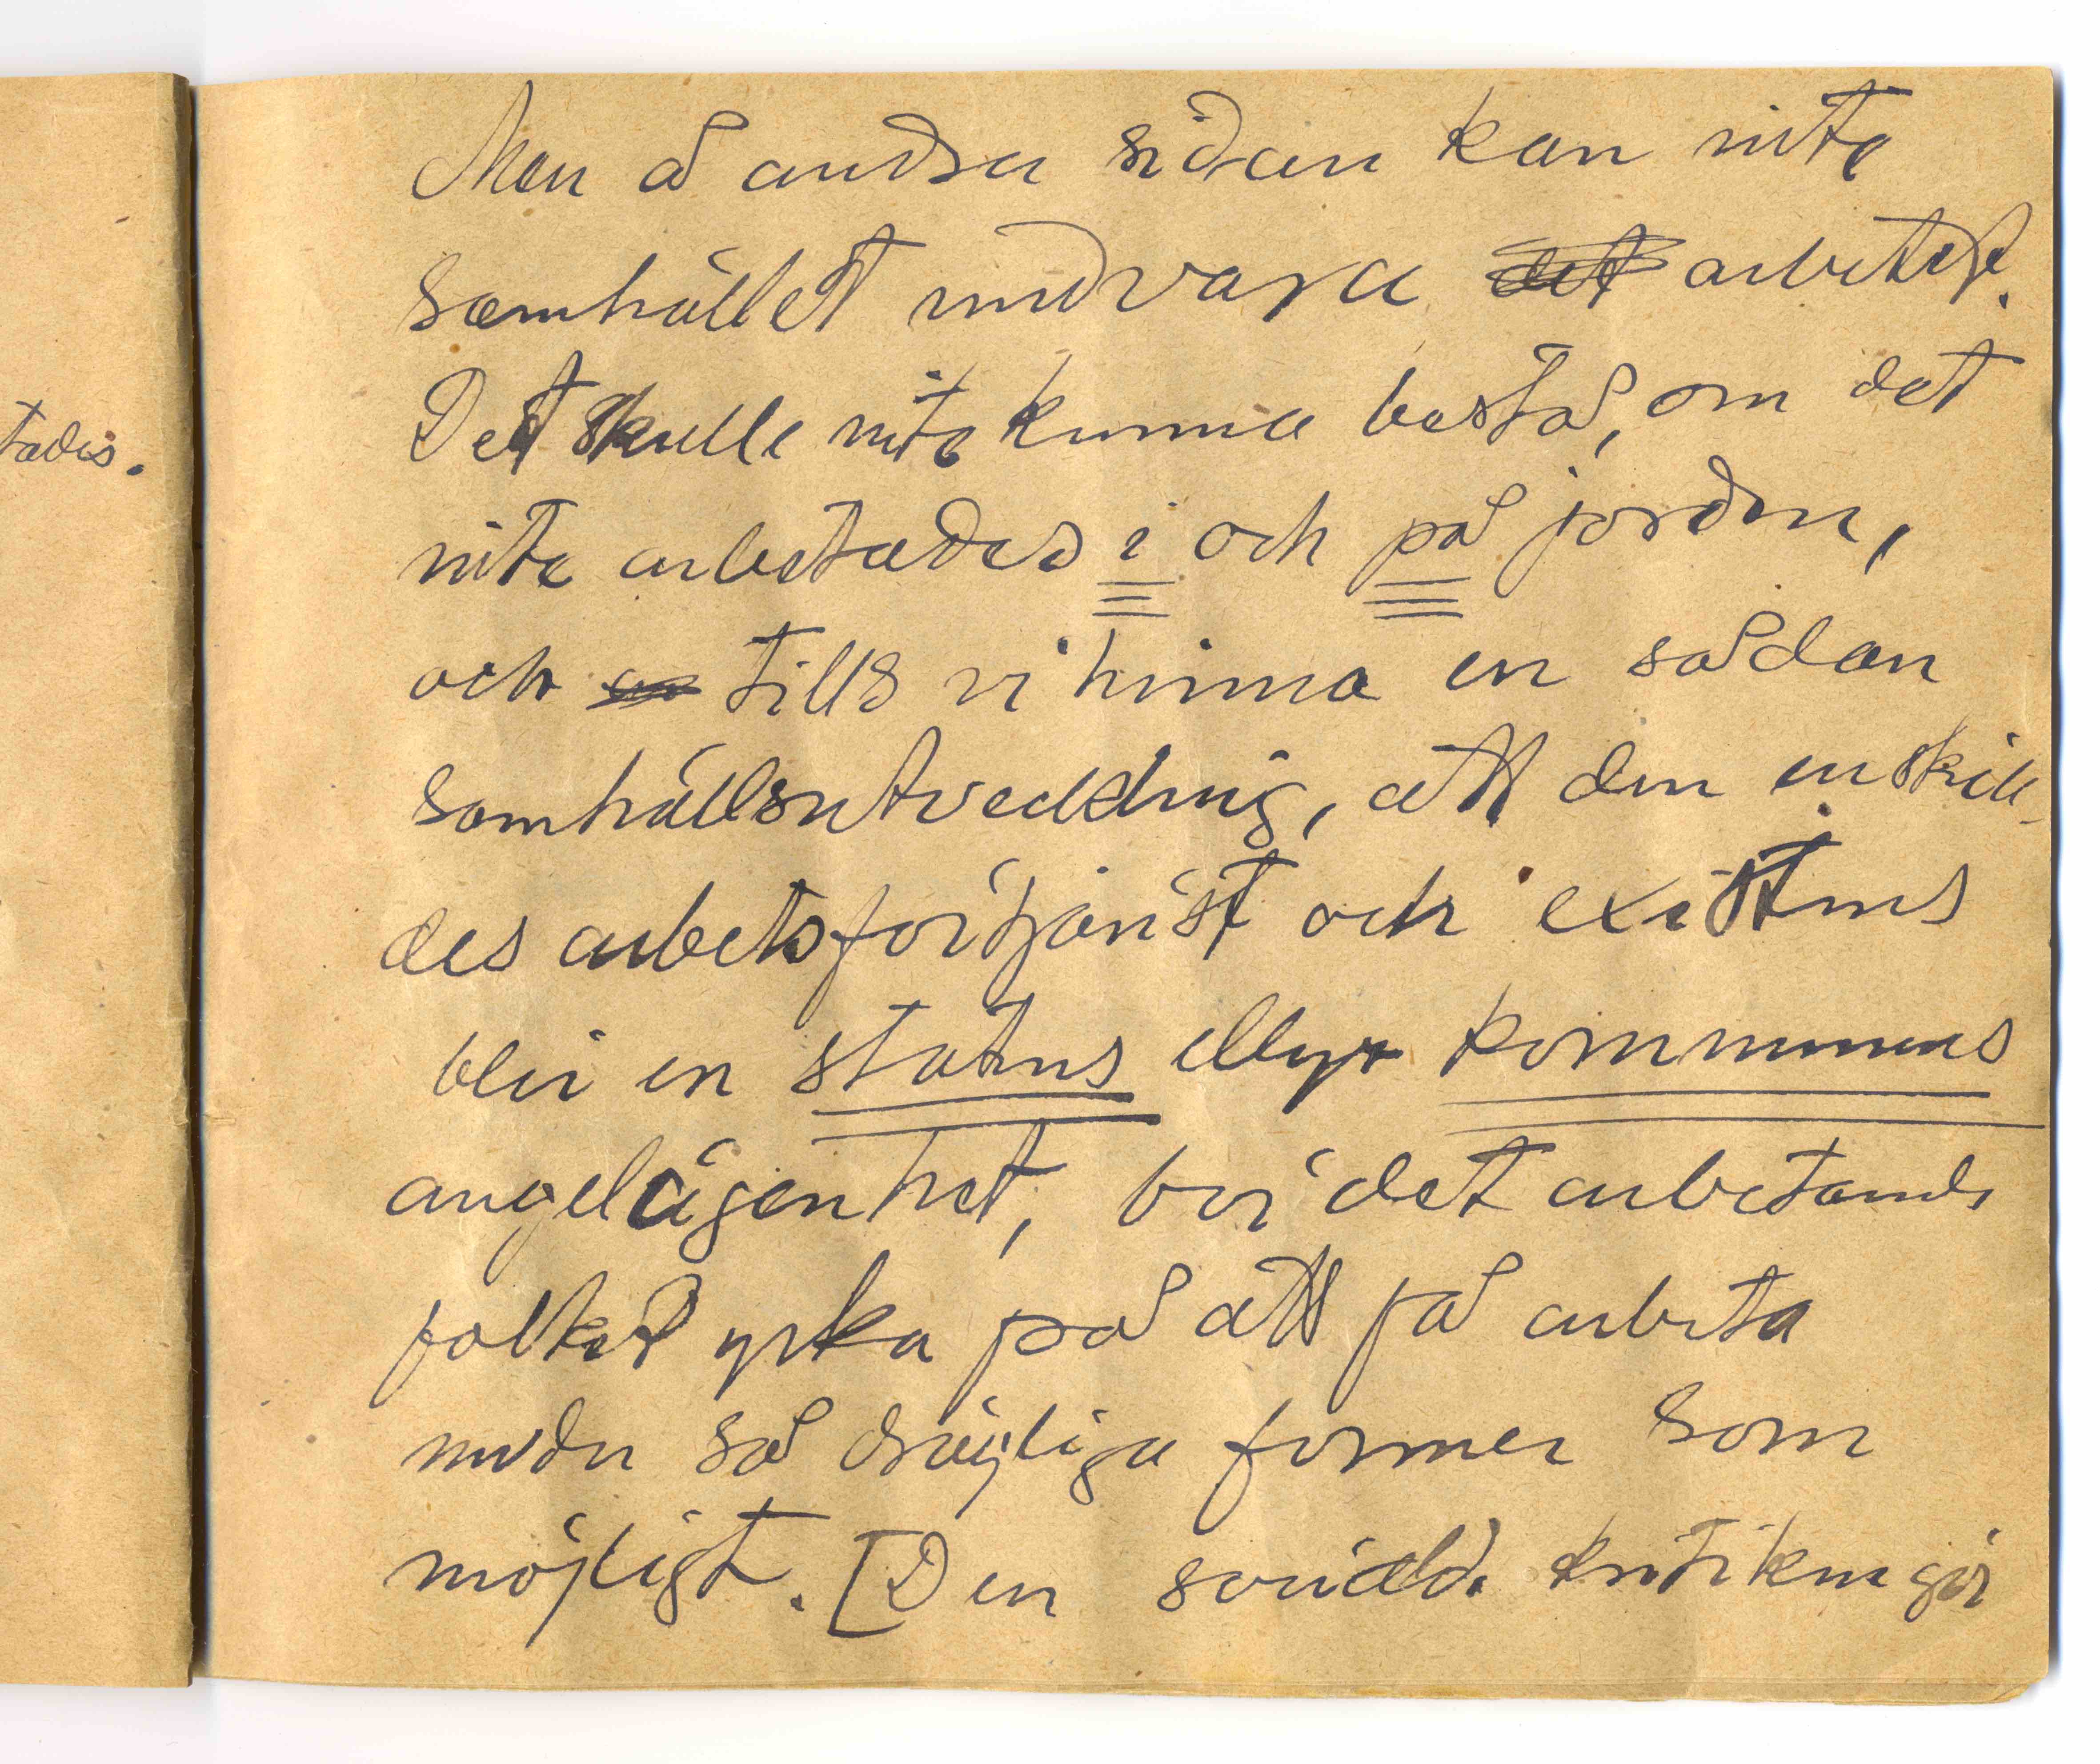 tades.
Men å andra sidan kan inte
samhället undvara det arbetet.
Det skulle inte kunna bestå, om det
inte arbetades i och på jorden,
och tills vi hinna en sådan
samhällsutveckling, att den enskil-
des arbetsförtjänst och existens
blir en statens eller kommunens
angelägenhet, bör det arbetande
folket yrka på att få arbeta
under så drägliga former som
möjligt. [Den sociala kritiken gör